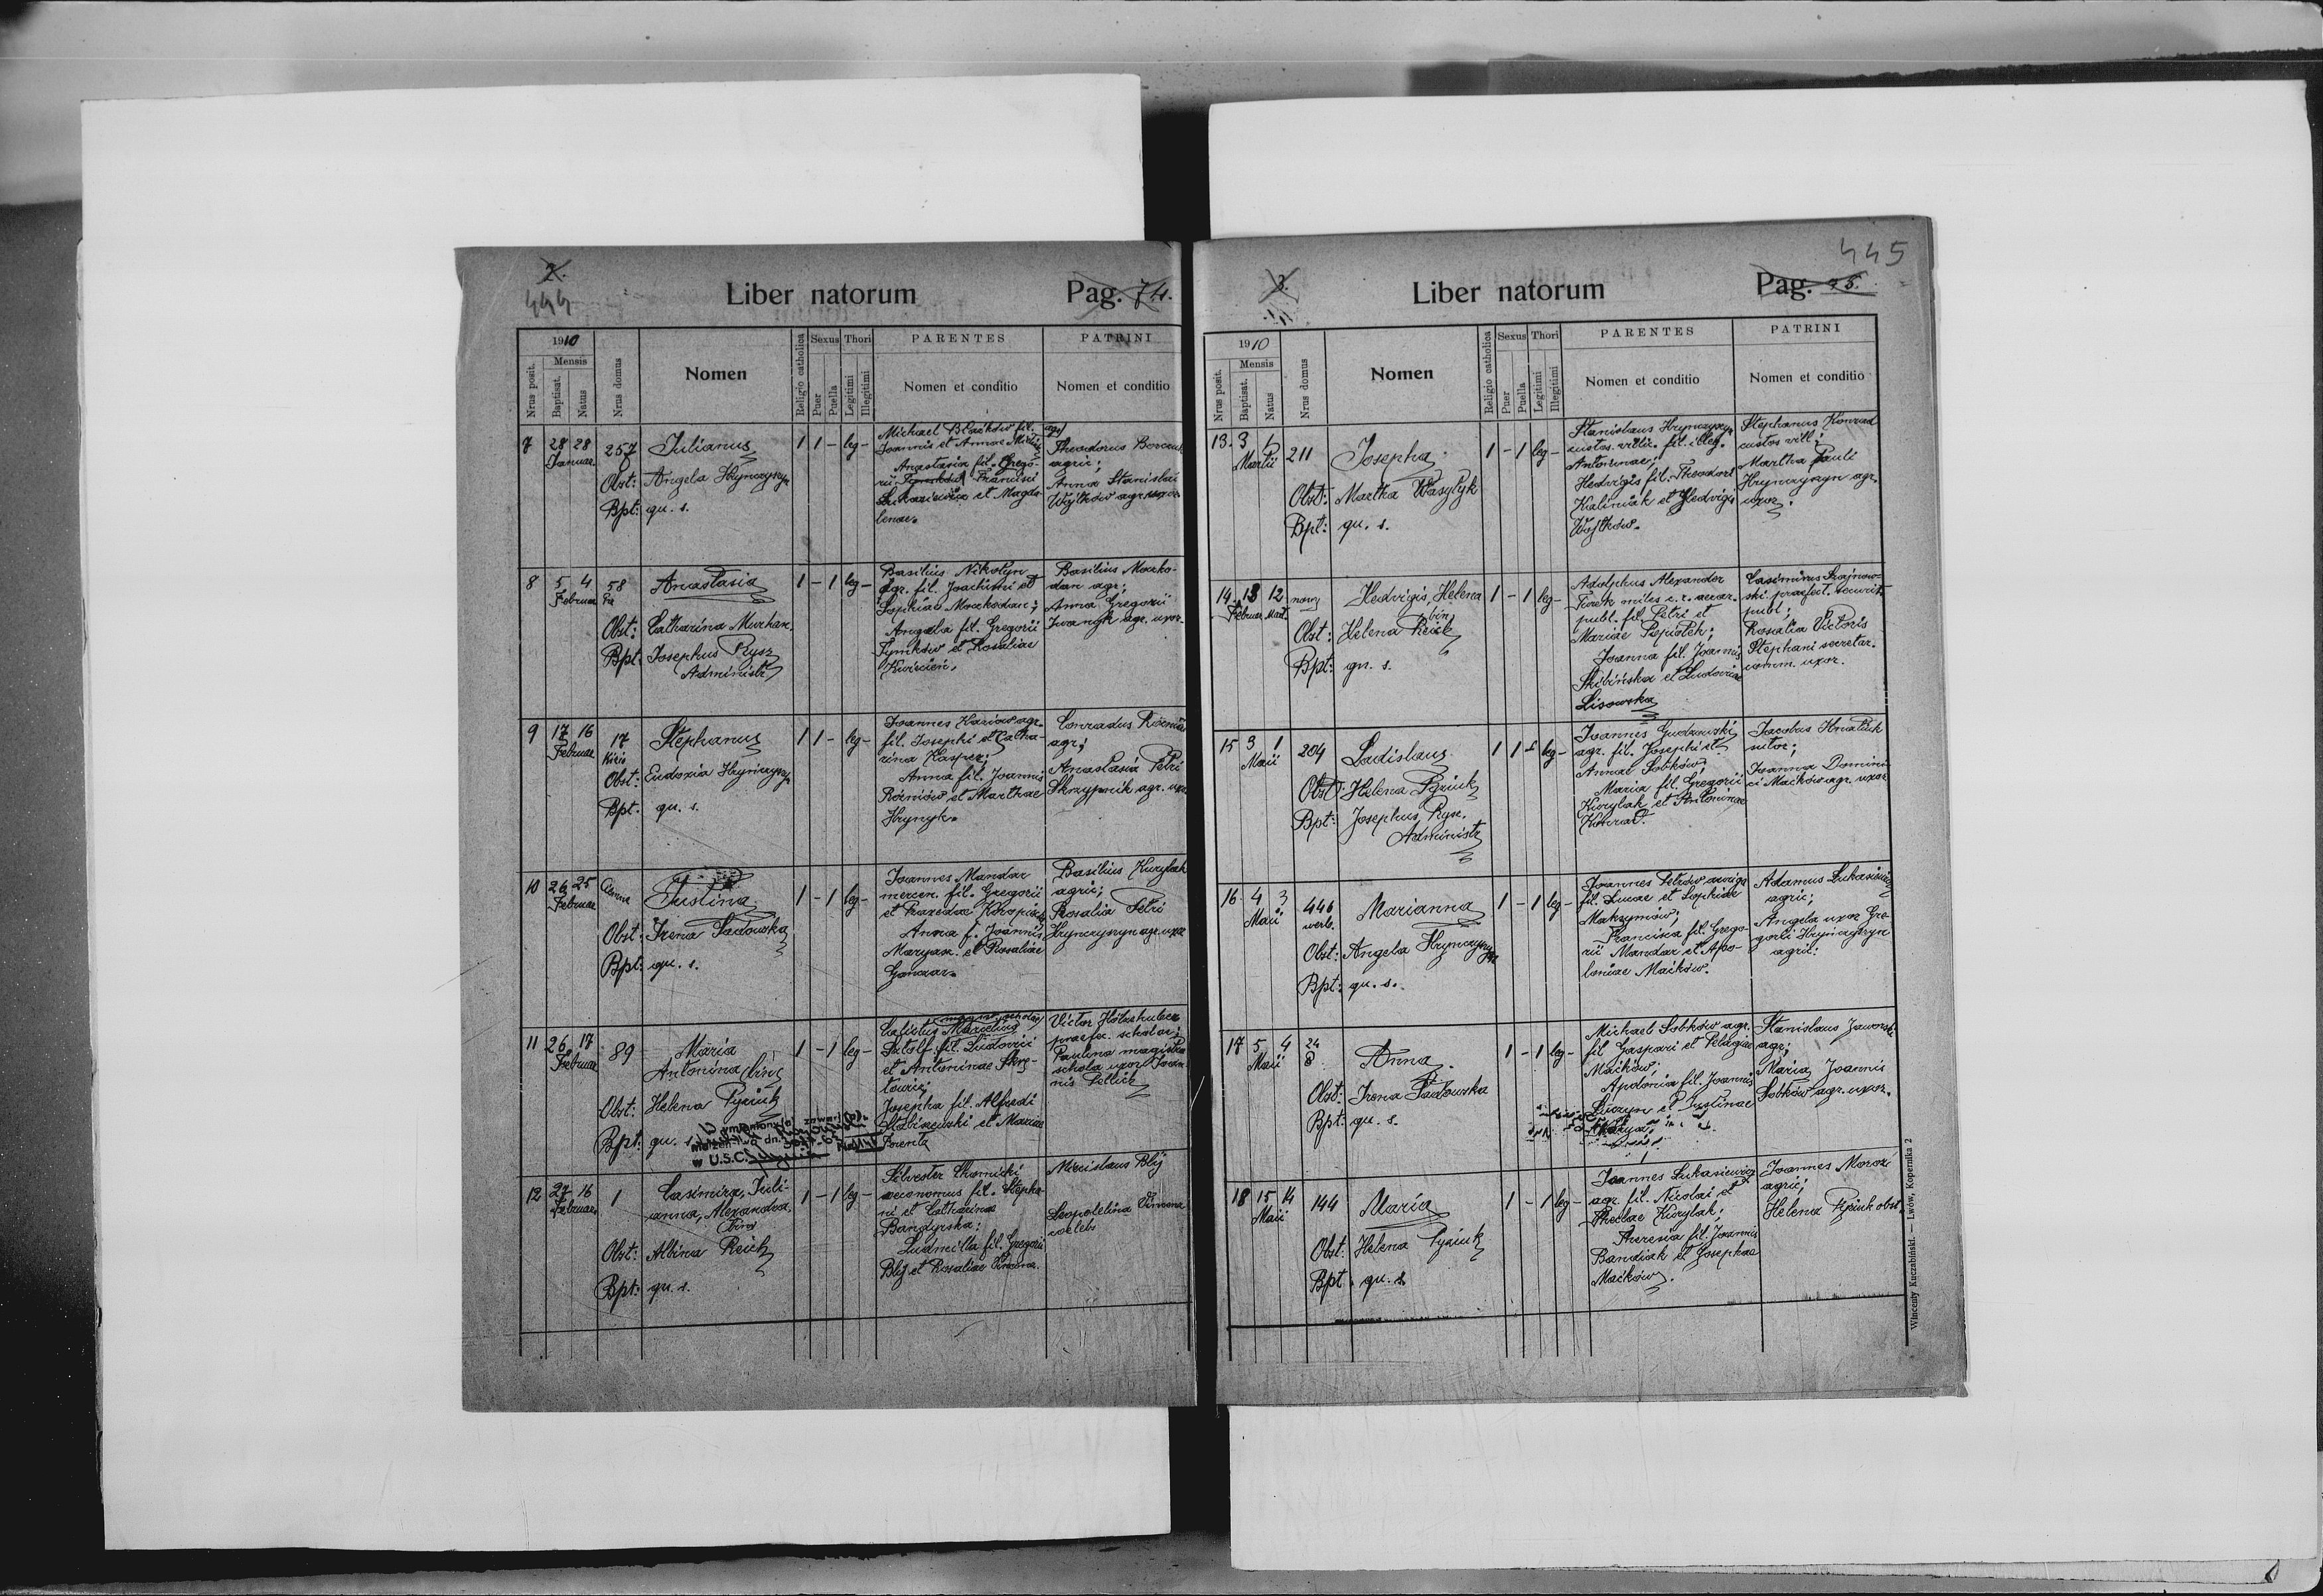 2.
444
Liber natorum
Pag. 74.
1910
Nrus posit.
Mensis
Baptisat.
Natus
Nrus domus
Nomen
Religio catholica
Sexus
Puer
Puella
Thori
Legitimi
Illegitimi
PARENTES
Nomen et conditio
PATRINI
Nomen et conditio
7 28 28 257 Julianus 1 1 - leg -
Januar.
Obst: Angela Hrynczyszyn
Bpt: qu. s.
Michael Maćków fil.
Joannis et Annae
Anastasia fil. Grego-
rii Francisci
Łukasiewicz et Magda-
lenae.
Theodorus
agric;
Anna Stanislai
Wojtków agr. uxor
8 5 4 58 Anastasia 1 - 1 leg -
Februar
Obst: Catharina
Bpt: Josephus Rysz
Administr
Basilius Nikołyn
agr. fil. Joachimi et
Sophiae
Angela fil. Gregorii
Tymków et Rosaliae
Kwiecień.
Basilius Moczko-
dan agr;
Anna Gregorii
Iwanyk agr. uxor.
9 17 16 17 Stephanus 1 1 - leg -
Februar
Obst: Eudoxia Hrynczyszyn
Bpt: qu. s.
Joannes agr.
fil. Josephi et Catha-
rina Kasper;
Anna fil. Joannis
Rożniów et Marthae
Hrynyk.
Conradus
agr;
Anastasia Petri
Skrzypnik agr. uxor
10 26 25 Justina 1 - 1 leg -
Februar
Obst: Irena Sadowska
Bpt: qu. s.
Joannes Mandar
mercen. fil. Gregorii
et Praxedae
Anna f. Joannis
et Rosaliae
Gonczar.
Basilius Kurylak
agric;
Rosalia Petri
Hrynczyszyn agr. uxor
11 26 17 89 Maria 1 - 1 leg -
Februar
Antonina bin
Obst: Helena Pyziuk
Bpt: qu. s.
małżeństwo dn.
w U.S.C.
Calistus Marcelius
fil. Ludovici
et Antoninae Skre-
towicz;
Josepha fil. Alfredi
et Mariae
Victor
praefec. scholar;
Paulina magistra
schola uxor Joan-
nis Pellich
12 27 16 1 Casimira, Juli- 1 - 1 leg -
Februar
anna, Alexandra
bin
Obst: Albina Reich
Bpt: qu. s.
Silvester Chomicki
oeconomus fil. Stepha-
ni et Catharinae
Bandyrska;
Ludmilla fil. Gregorii
Blij et Rosaliae
Miecislaus Blij
Leopoldina
coelebs
3.
445
Liber natorum
Pag. 75.
1910
Nrus posit.
Mensis
Baptisat.
Natus
Nrus domus
Nomen
Religio catholica
Sexus
Puer
Puella
Thori
Legitimi
Illegitimi
PARENTES
Nomen et conditio
PATRINI
Nomen et conditio
13. 3 211 Josepha 1 - 1 leg -
Martii
Obst: Martha Wasylyk
Bpt: qu. s.
Stanislaus Hrynczyszyn
custos villic. fil. illeg.
Antoninae;
Hedvigis fil. Theodori
Kaliniak et Hedvigis
Wojtków.
Stephanus Konrad
custos vill;
Martha Pauli
Hrynczyszyn agr.
uxor.
14. 13 12 nowy Hedvigis Helena 1 - 1 leg -
Februar Mart.
bin
Obst: Helena Reich
Bpt: qu. s.
Adolphus Alexander
Turek miles c. r. secur.
publ. fil. Petri et
Mariae
Joanna fil. Joannis
Skibińska et Ludovicae
Lisowska
Casimirus
ski praefect. securit.
publ;
Rosalia Victoris
Stephani secretar.
comm. uxor.
15 3 1 204 Ladislaus 1 1 - leg -
Maii
Obst: Helena Pyziuk
Bpt: Josephus Rysz.
Administr
Joannes
agr. fil. Josephi et
Annae Sobków;
Maria fil. Gregorii
Kurylak et Antoninae
Konrad.
Jacobus Hnatiuk
sutor;
Joanna Domini-
ci Maćków agr. uxor
16 4 3 446 Marianna 1 - 1 leg -
Maii
werb.
Obst: Angela Hrynczyszyn
Bpt: qu. s.
Joannes Petrów auriga
fil. Lucae et Sophiae
Maksymów;
Francisca fil. Grego-
rii Mandar et Apo-
loniae Maćków.
Adamus Łukasiewicz
agric;
Angela uxor Gre-
gorii Hrynczyszyn
agric:
17 5 4 24 Anna 1 - 1 leg -
Maii 8
Obst: Irena Sadowska
Bpt: qu. s.
Michael Sobków agr.
fil Gaspari et Pelagiae
Maćków;
Apolonia fil. Joannis
et Justinae
Stanislaus Jaworski
agr;
Maria Joannis
Sobków agr. uxor.
18 15 14 144 Maria 1 - 1 leg -
Maii
Obst: Helena Pyziuk
Bpt. qu. s.
Joannes Łukasiewicz
agr. fil. Nicolai et
Theclae Kurylak;
Theresia fil. Joannis
Bandiak et Josephae
Maćków.
Joannes Moroz
agric;
Helena Pyziuk obst.
Wincenty Kuczabiński. — Lwów, Kopernika 2